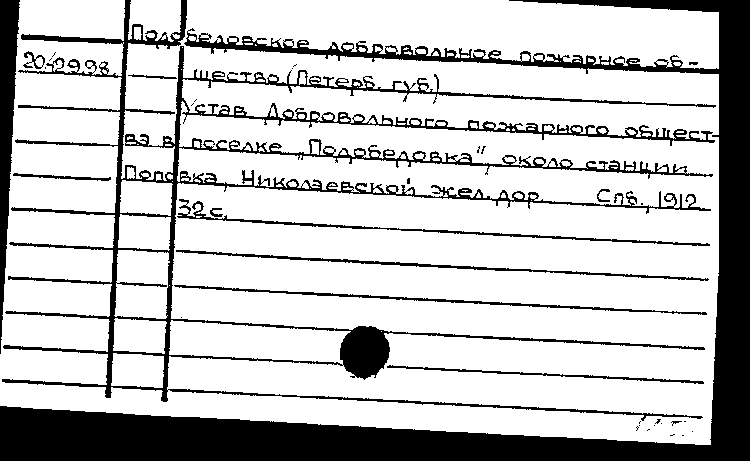 Подобедовское добровольное пожарное об-
щество (Петерб. губ.)
Устав Добровольного пожарного общест-
ва в поселке „Подобедовка", около станции
Поповка, Николаевской жел. дор. Спб., 1912
32 с.